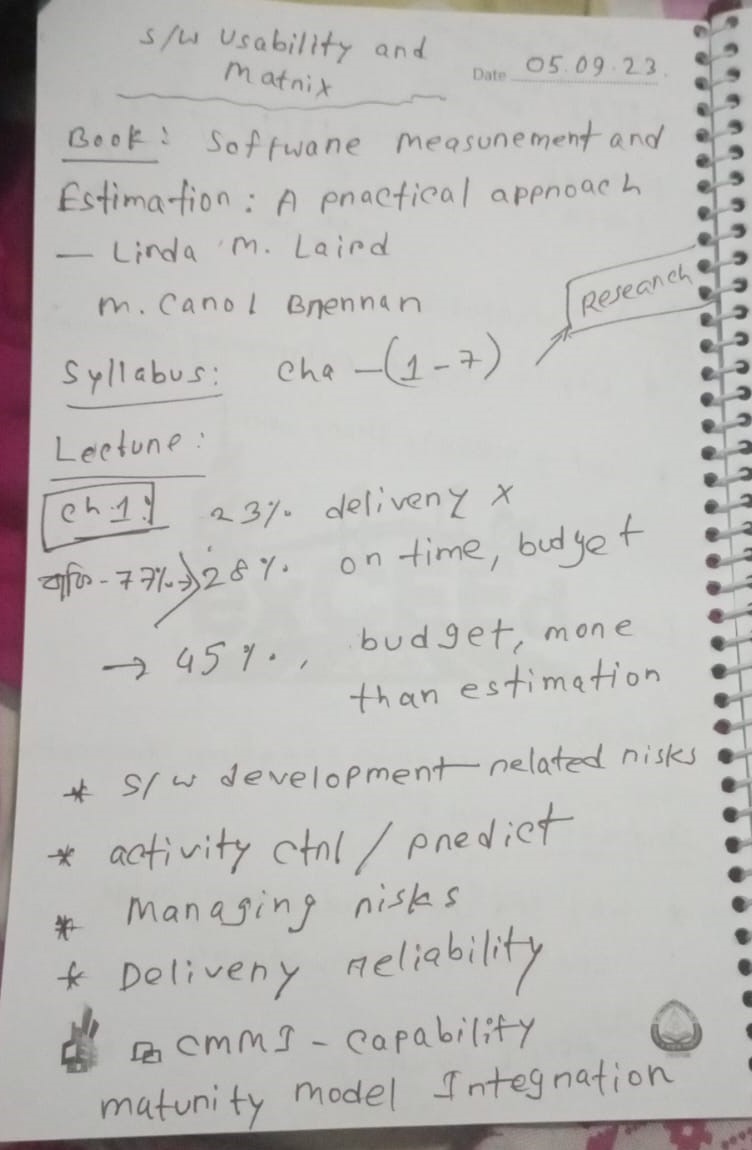 S/W Usability and
Matrix
Date 05.09.23.
Book: Software measurement and
Estimation: A practical approach
— Linda M. Laird
M. Carol Brennan
Research
Syllabus: Cha -(1-7)
Lecture:
Ch.1: 23% delivery x
বাকি - 77% → 28% on time, budget
→ 45%, budget, more
than estimation
* S/W development related risks
* activity ctrl / predict
* Managing risks
* Delivery reliability
CMMI - Capability
maturity model Integration